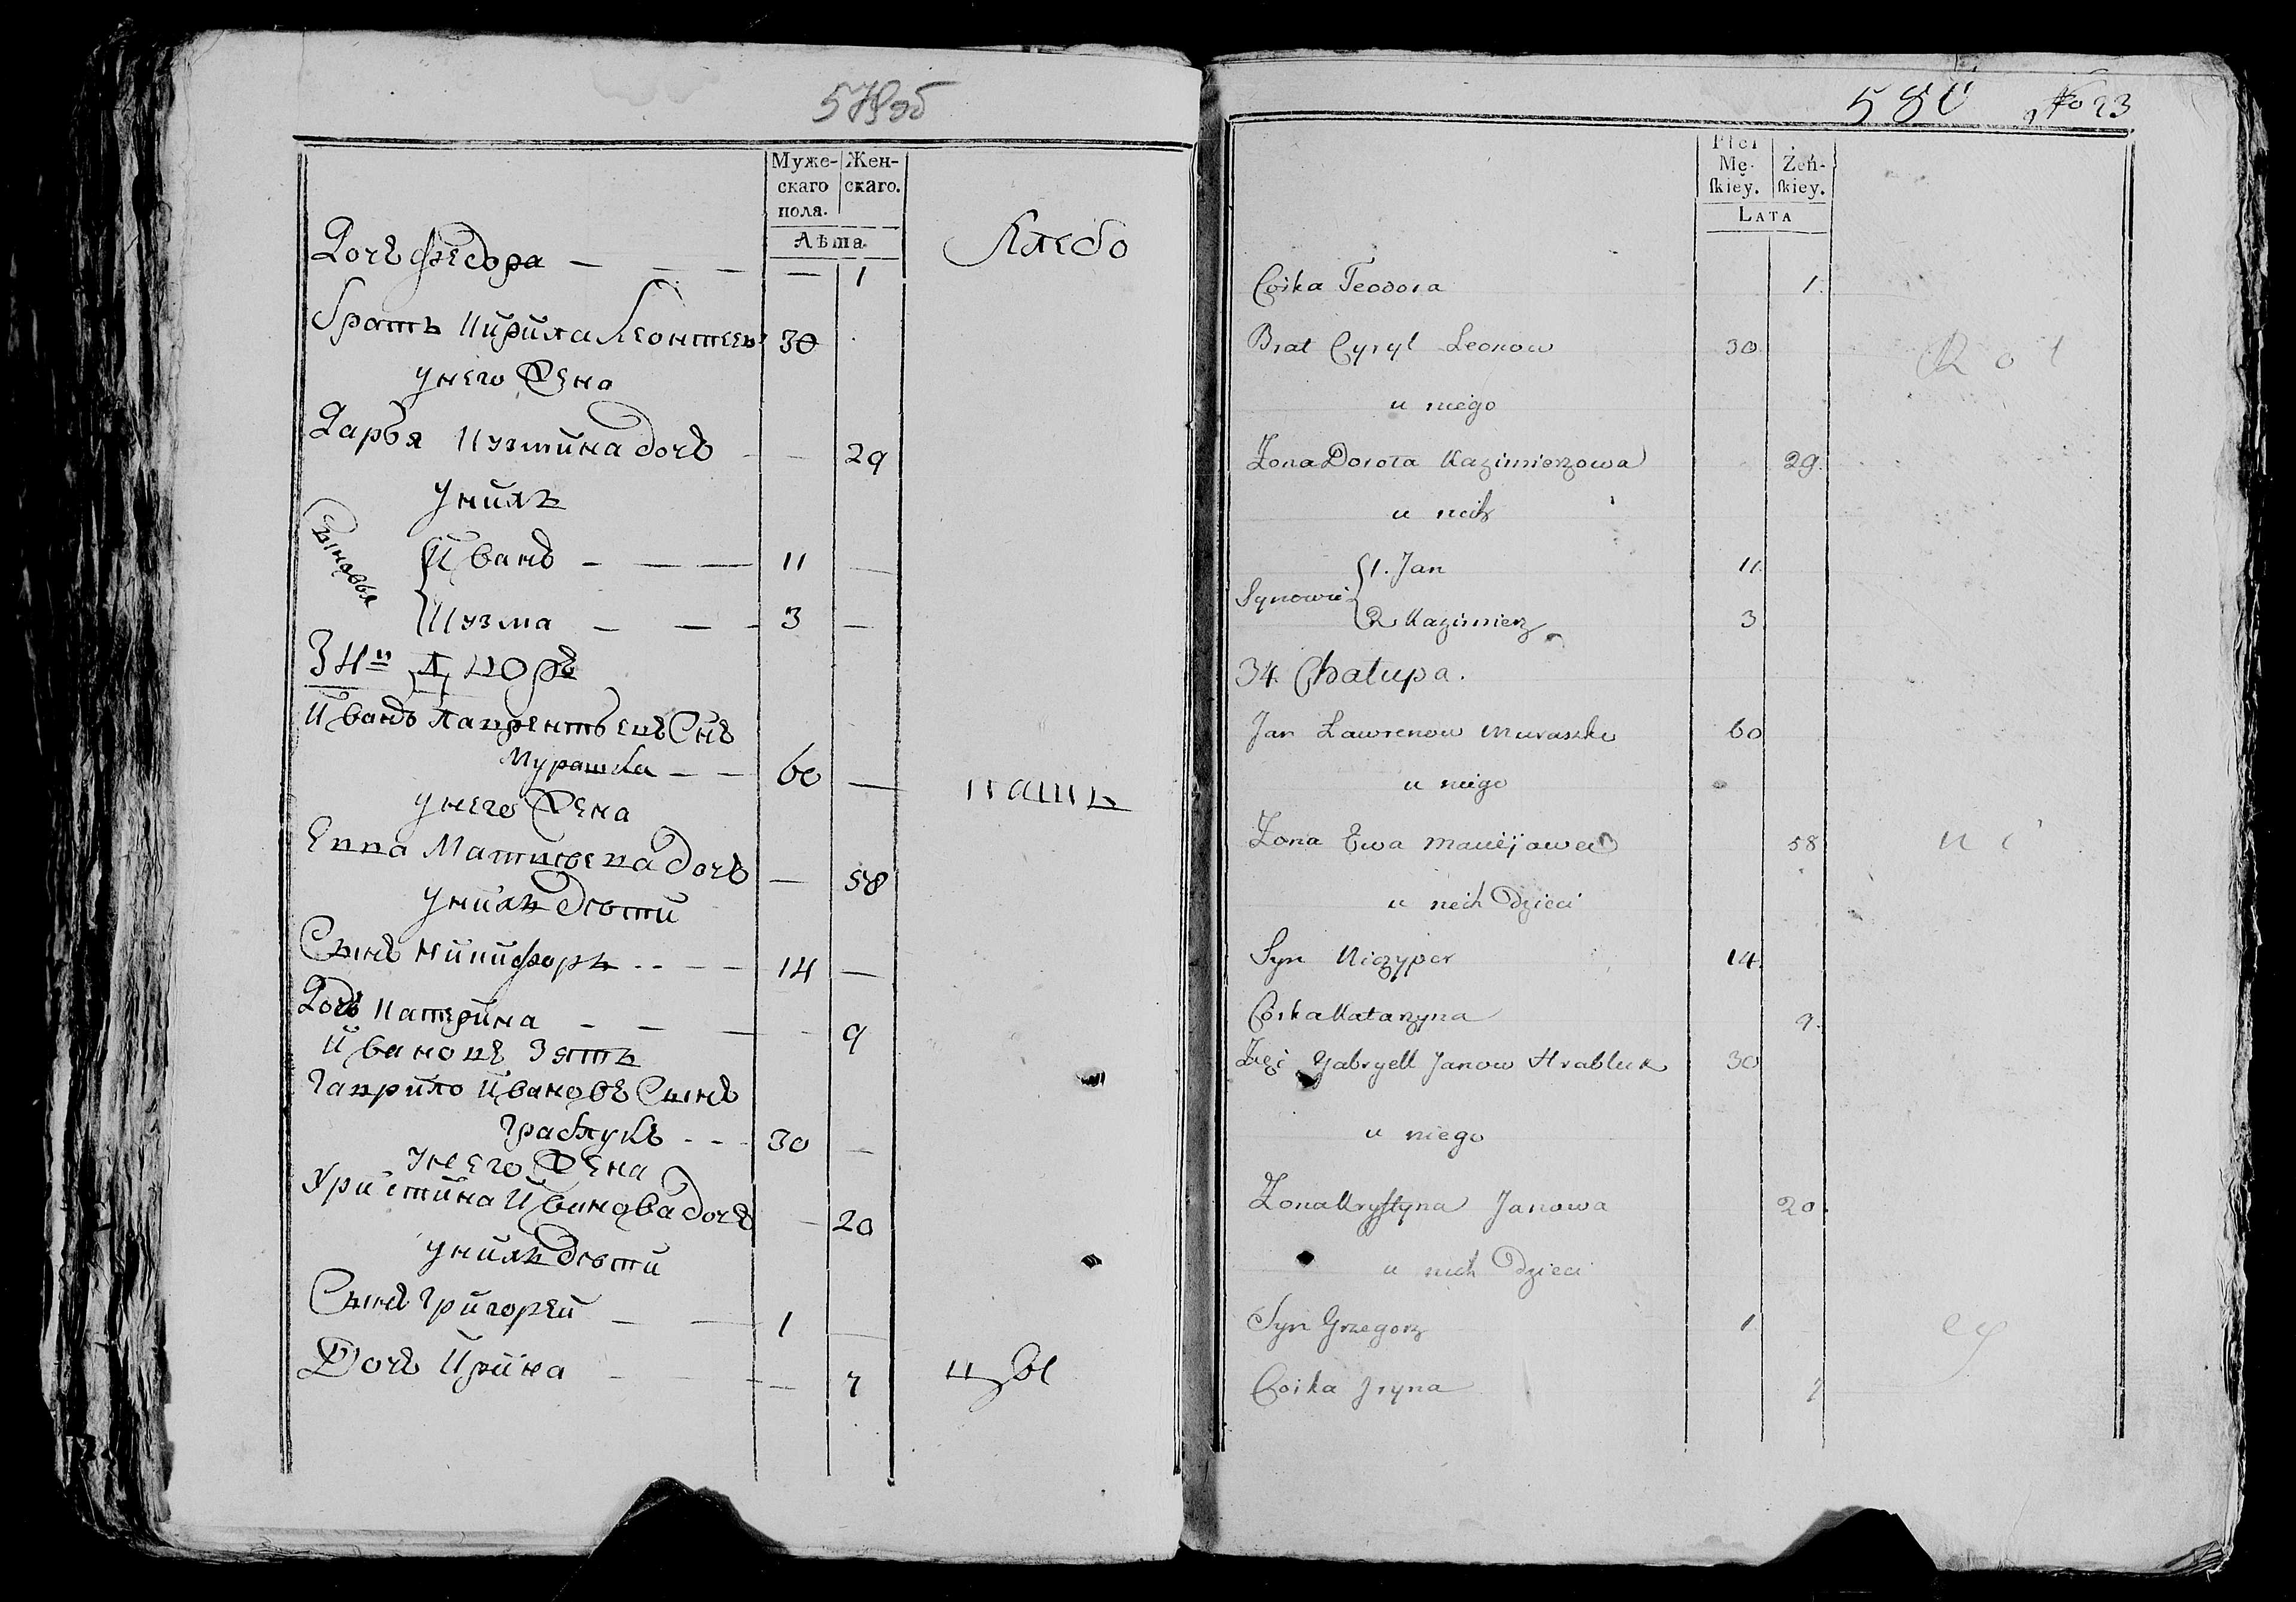 579об
Муже-
скаго
пола.
Жен-
скаго.
Лѣта
Хлебо
Дочь Федора — — — — 1
братъ Кирила Леонтеевъ 30
у него жена
Дарья Кузмина дочь — 29
у нихъ
Сыновья
Иванъ — — — 11 —
Кузма — — — 3 —
34й двор
Иванъ Лаврентьевъ Снъ
Мурашка — — 60 —
пашъ
у него жена
Евва Матисвева дочь — 58
у нихъ дѣти
Сынъ Никифоръ - - — — 14 —
Дочь Катерина — — — - 9
Иванове Зять
Гаврило Ивановъ Сынъ
Граблукъ - - - 30 —
у него жена
Христина Иванова дочь — 20
у нихъ дѣти
Сынъ Григорей — — 1 —
Дочь Ирина — — — 7
цы
580 No 23
Płci
Mę-
ſkiey.
Żeń-
ſkiey.
LATA
Corka Teodora 1.
Brat Cyryl Leonow 30
Rol
u niego
Zona Dorota Kazimierzowa 29.
u nich
Synowie
1. Jan 11.
2 Kazimierz 3
34. Chałupa.
Jan Lawrenow Muraszko 60
u niego
Zona Ewa Maciejowa 58
ni
u nich Dzieci
Syn Niczypor 14.
Corka Katarzyna 9.
Zięć Gabryell Janow Hrabluk 30
u niego
Zona Kryſtyna Janowa 20.
u nich Dzieci
Syn Grzegorz 1
cy
Corka Jryna 7